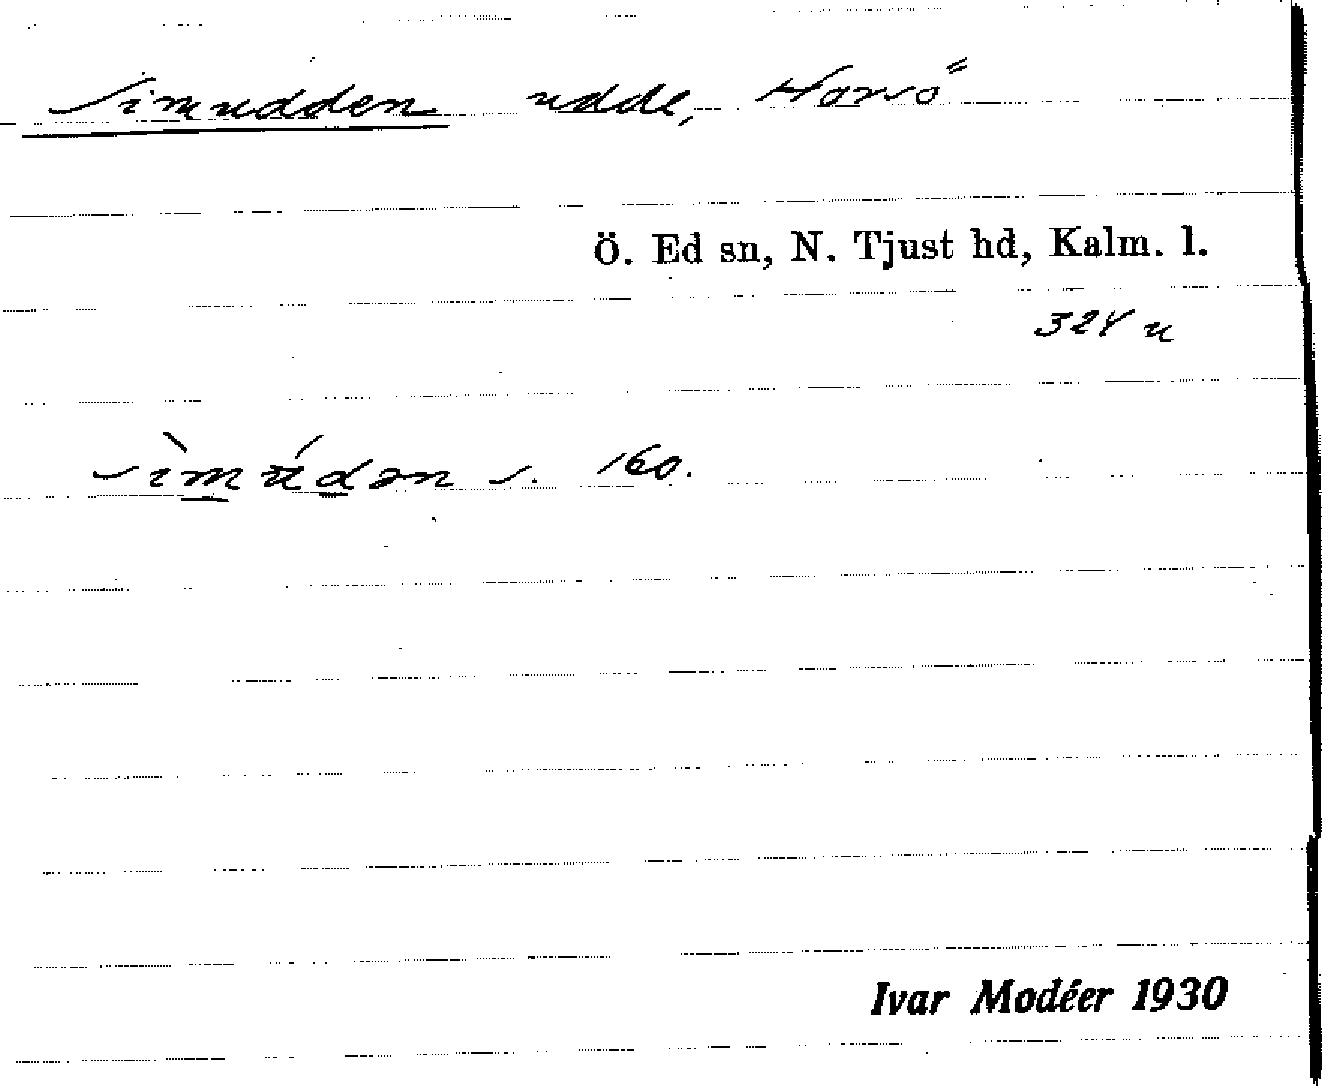 Simudden udde, Horsö
Ö. Ed sn, N. Tjust hd, Kalm. l.
324 u
sìmúdən s. 160.
Ivar Modéer 1930